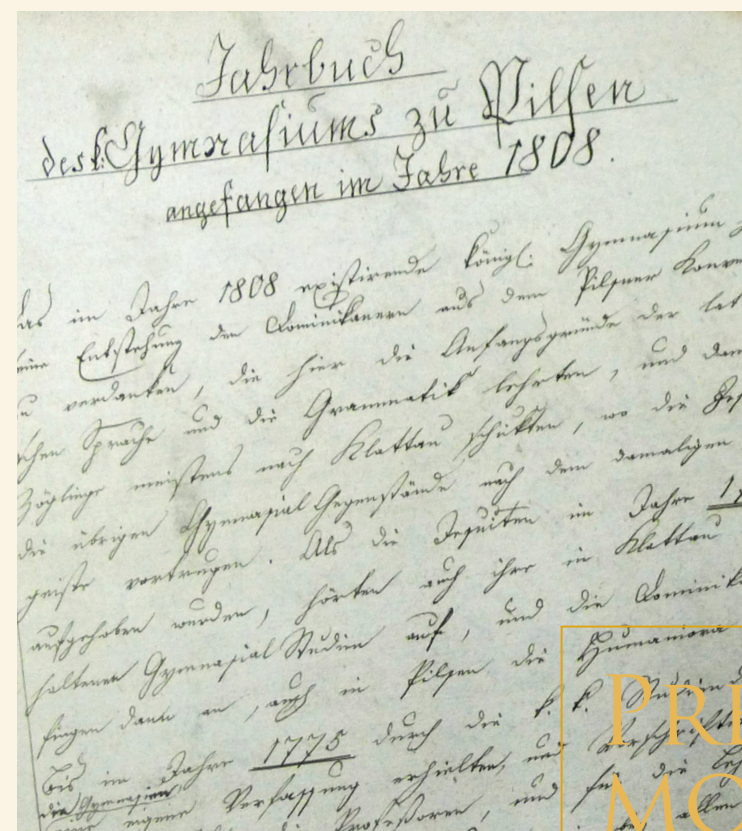 Jahrbuch
des k. Gymnasiums zu Pilsen
angefangen im Jahre 1808.
as im Jahre 1808 existirende königl: Gymnasium
eine Entstehung den Dominikanern aus dem Pilsner Konve
u verdanken, die hier die Anfangsgründe der lat
chen Sprache und die Grammatik lehrten, und dan
Zöglinge meistens nach Klattau schikten, wo die Jes
die übrigen Gymnasial Gegenstände nach dem damaligen
geiste vortrugen. Als die Jesuiten im Jahre 17
aufgehoben wurden, hörten auch ihre in Klattau
haltenen Gymnasial Studien auf, und die Dominik
fingen dann an, auch in Pilsen die Humaniora
bis im Jahre 1775 durch die k. k. Studien
die Gymnasien
eine eigene Verfassung erhielten, und Vorschrift
die Professoren, und für die
allen
PRI
MO